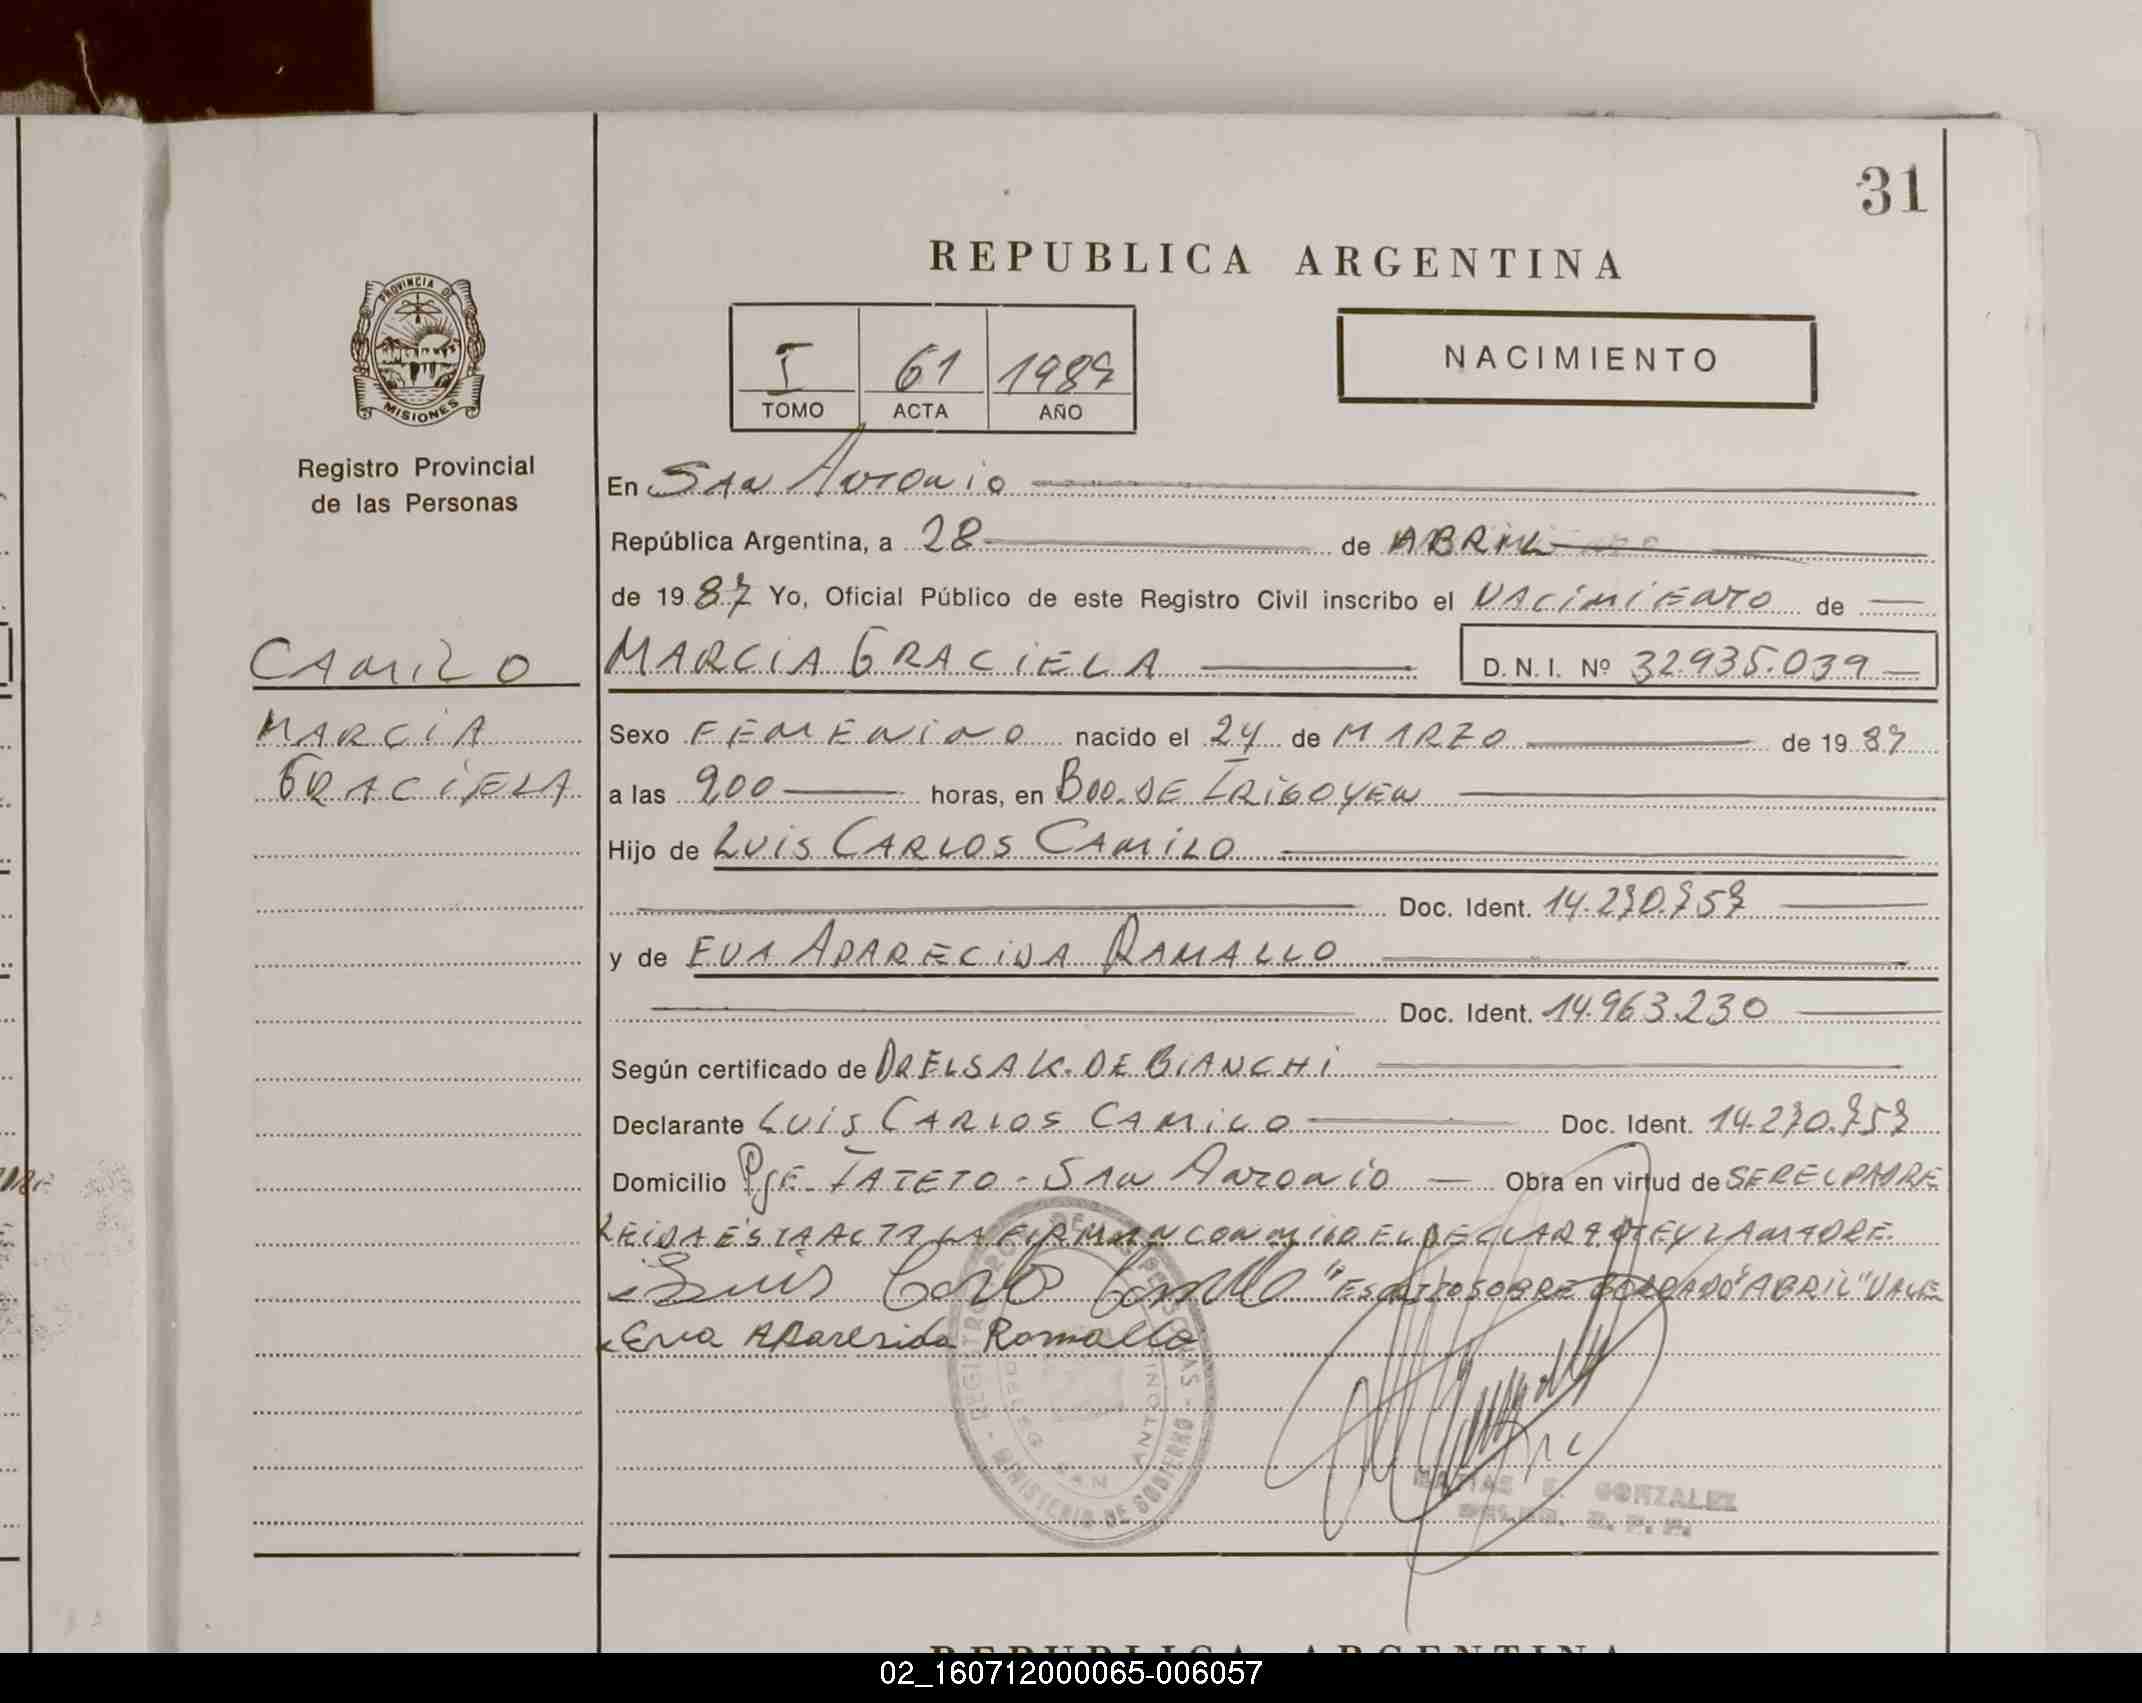 31
REPUBLICA ARGENTINA
PROVINCIA DE
MISIONES
I 61 1987
TOMO ACTA AÑO
NACIMIENTO
Registro Provincial
de las Personas
En SAN ANTONIO
República Argentina, a 28 de ABRIL
de 1987 Yo, Oficial Público de este Registro Civil inscribo el NACIMIENTO de
CAMILO
MARCIA GRACIELA D. N. I. Nº 32.935.039
MARCIA
GRACIELA
Sexo FEMENINO nacido el 24 de MARZO de 1987
a las 9,00 horas, en BDO. DE IRIGOYEN
Hijo de LUIS CARLOS CAMILO
Doc. Ident. 14.270.757
y de EVA APARECIDA RAMALLO
Doc. Ident. 14.963.230
Según certificado de DR ELSA K. DE BIANCHI
Declarante LUIS CARLOS CAMILO Doc. Ident. 14.270.757
Domicilio PJE. TATETO - SAN ANTONIO Obra en virtud de SER EL PADRE
LEIDA ESTA ACTA LA FIRMAN CONMIGO EL DECLARANTE Y LA MADRE.
Luis Carlo Camilo "ESCRITO SOBRE BORRADO" ABRIL" VALE
Eva Aparesida Ramallo
REGISTRO PROV. DE LAS PERSONAS
SAN ANTONIO
MINISTERIO DE GOBIERNO
MATIAS E. GONZALEZ
DELEG. R. P. P.
REPUBLICA ARGENTINA
02_160712000065-006057